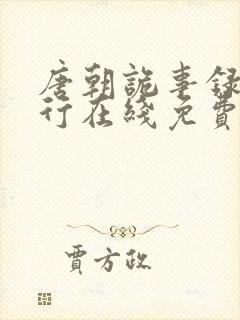 唐朝詭事録
行在綫免費
賈方政